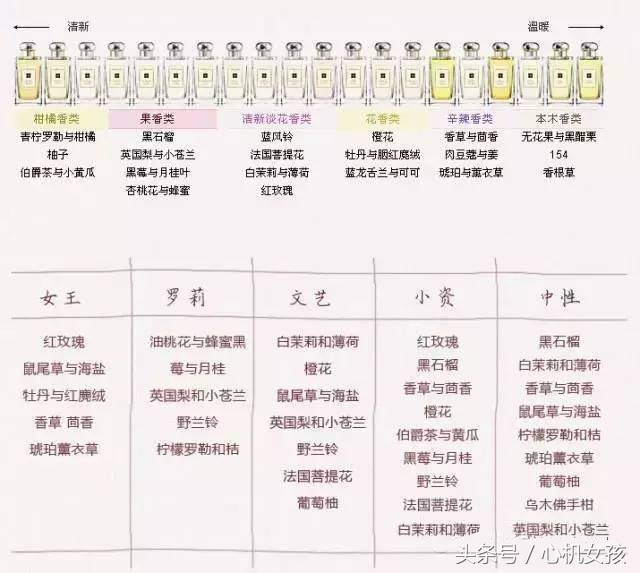 清新
温暖
柑橘香类
青柠罗勒与柑橘
柚子
伯爵茶与小黄瓜
果香类
黑石榴
英国梨与小苍兰
黑莓与月桂叶
杏桃花与蜂蜜
清新淡花香类
蓝风铃
法国菩提花
白茉莉与薄荷
红玫瑰
花香类
橙花
牡丹与胭红麂绒
蓝龙舌兰与可可
辛辣香类
香草与茴香
肉豆蔻与姜
琥珀与薰衣草
本木香类
无花果与黑醋栗
154
香根草
女王
红玫瑰
鼠尾草与海盐
牡丹与红麂绒
香草 茴香
琥珀薰衣草
罗莉
油桃花与蜂蜜黑
莓与月桂
英国梨和小苍兰
野兰铃
柠檬罗勒和桔
文艺
白茉莉和薄荷
橙花
鼠尾草与海盐
英国梨和小苍兰
野兰铃
法国菩提花
葡萄柚
小资
红玫瑰
黑石榴
香草与茴香
橙花
伯爵茶与黄瓜
黑莓与月桂
野兰铃
法国菩提花
白茉莉和薄荷
中性
黑石榴
白茉莉和薄荷
香草与茴香
鼠尾草与海盐
柠檬罗勒和桔
琥珀薰衣草
葡萄柚
乌木佛手柑
英国梨和小苍兰
头条号／心机女孩